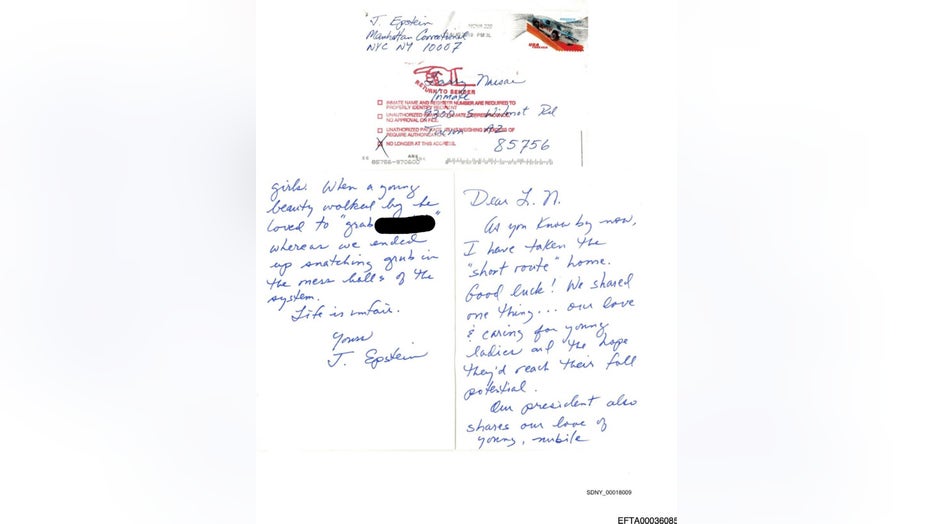 J. Epstein
Manhattan Correctional
NYC NY 10007
USA
RETURN TO SENDER
Larry Nassar
Inmate
INMATE NAME AND REGISTER NUMBER ARE REQUIRED TO
PROPERLY IDENTIFY RECIPIENT
9300 S. Wilmot Rd
UNAUTHORIZED
NO APPROVAL ON FILE.
Tucson AZ
UNAUTHORIZED
NO LONGER AT THIS ADDRESS.
85756
girls. When a young
beauty walked by he
loved to "grab "
whereas we ended
up snatching grub in
the mess halls of the
system.
Life is unfair.
Yours
J. Epstein
Dear L. N.
As you know by now,
I have taken the
"short route" home.
Good luck! We shared
one thing... our love
& caring for young
ladies and the hope
they'd reach their full
potential.
Our president also
shares our love of
young, nubile
SDNY_00018009
EFTA00036085